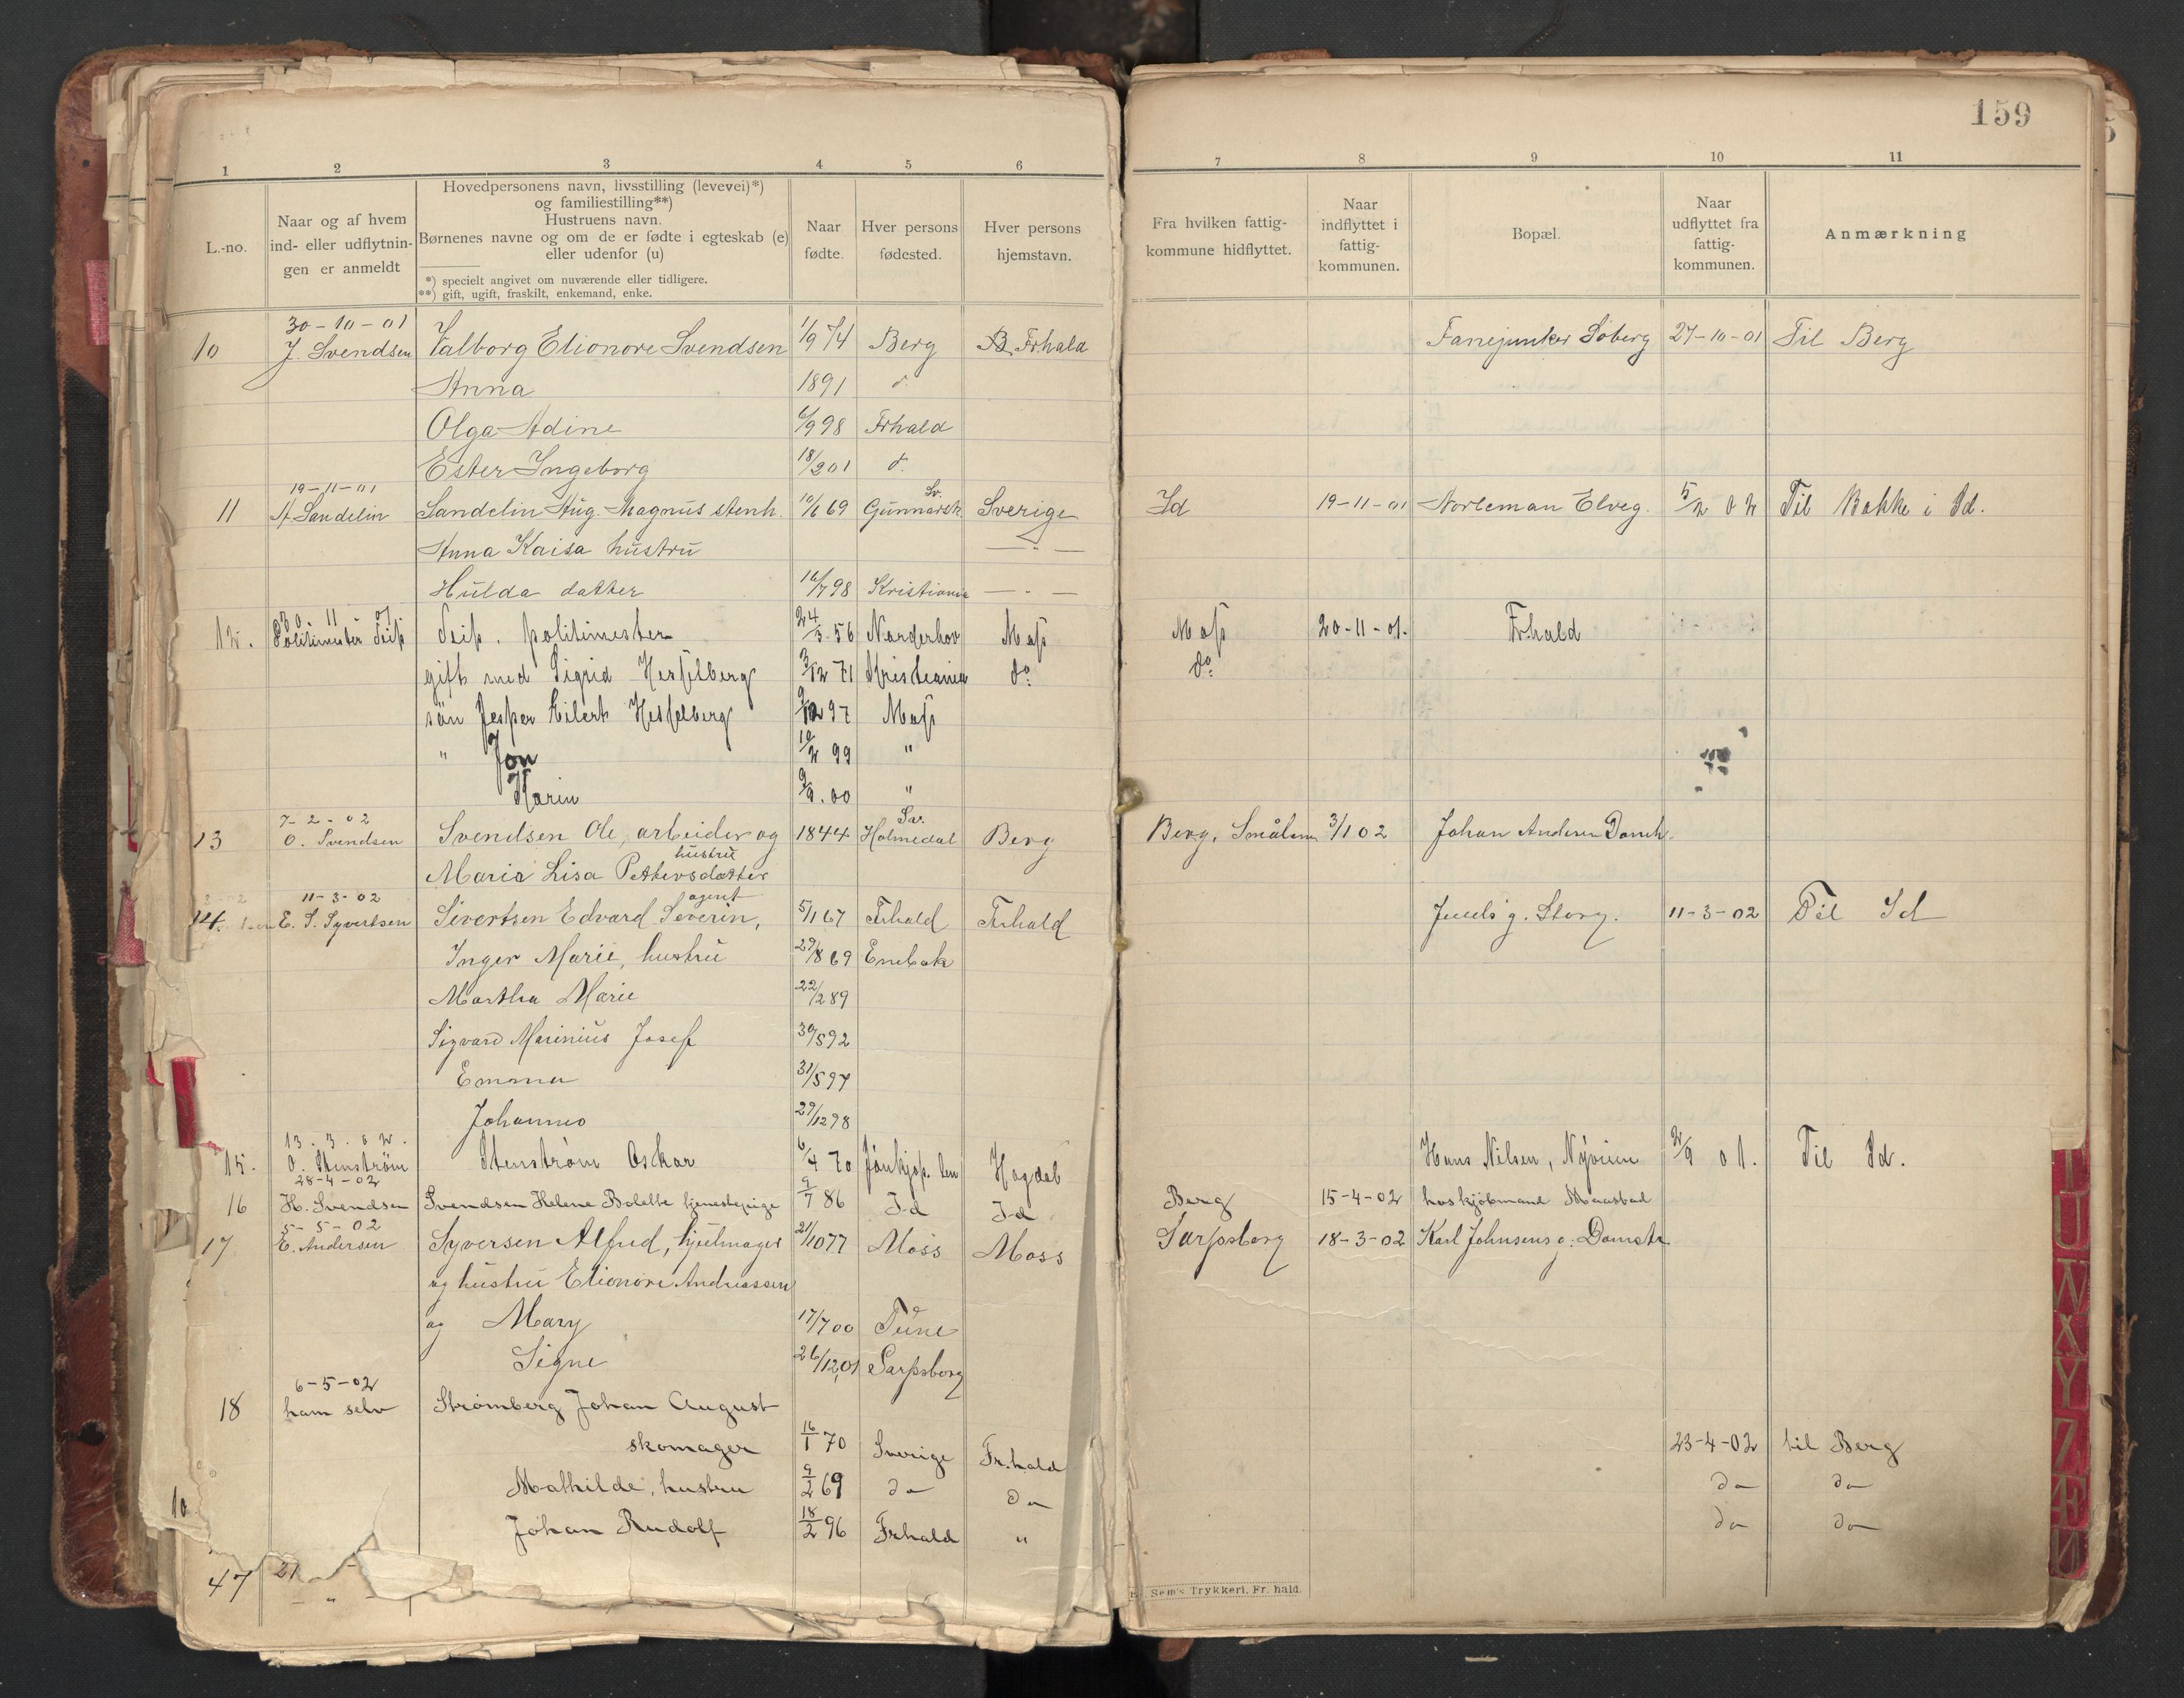 159
1 2 3 4 5 6 7 8 9 10 11
L.-no.
Naar og af hvem
ind- eller udflytnin-
gen er anmeldt
Hovedpersonens navn, livsstilling (levevei)*)
og familiestilling**)
Hustruens navn.
Børnenes navne og om de er fødte i egteskab (e)
eller udenfor (u)
*) specielt angivet om nuværende eller tidligere.
**) gift, ugift, fraskilt, enkemand, enke.
Naar
fødte.
Hver persons
fødested.
Hver persons
hjemstavn.
Fra hvilken fattig-
kommune hidflyttet.
Naar
indflyttet i
fattig-
kommunen.
Bopæl.
Naar
udflyttet fra
fattig-
kommunen.
Anmærkning
30-10-01
10 J. Svendsen Valborg Elionore Svendsen 1/9 74 Berg Frhald Fanejunker Soberg 27-10-01 Til Berg
Anna 1891 d.
Olga Adine 6/9 98 Frhald
Ester Ingeborg 18/2 01 d.
19-11-01 Sv.
11 A Sandelin Sandelin Aug. Magnus stenh. 10/6 69 Gunnarsk. Sverige Id 19-11-01 Norleman Elveg. 5/2 02 Til Bakke i Id.
Anna Kaisa hustru — " —
Hulda datter 16/7 98 Kristiania — " —
30 11 01
12. Politimester Seip Seip. politimester 24/3 56 Norderhov Moss Moss 20-11-01. Frhald
gift med Sigrid Hesselberg 3/12 71 Kristiania do do
sön Jesper Eilert Hesselberg 97 Moss
" Jon 10/2 99 "
Karin 9/9. 00 "
7-2-02 Sv.
13 O. Svendsen Svendsen Ole, arbeider og 1844 Holmedal Berg Berg, Smålene 3/1 02 Johan Andersen Damh.
hustru
Maria Lisa Pettersdatter
11-3-02 agent
14. E. S. Syvertsen Sivertsen Edvard Severin, 5/1 67 Frhald Frhald g. Storg. 11-3-02 Til Id
Inger Marie, hustru 29/8 69 Enebak
Martha Marie 22/2 89
Sigvard Marinius Josef 30/5 92
Emma 31/5 97
Johannes 29/12 98
13. 3. 02.
15. O. Stenström Stenström Oskar 6/4 70 Jönkjøp. len Hogdal Hans Nilsen, Nyveien 2/9 01. Til Id.
28-4-02
16 H. Svendsen Svendsen Helene Bolette tjenestepige 9/7 86 Id Id Berg 15-4-02 hos kjøbmand Maastad
5-5-02
17 E. Andersen Syversen Alfred, hjulmager 21/10 77 Moss Moss Sarpsborg 18-3-02 Karl Johnsens g: Damstr
og hustru Elionore Andreassen
og Mary 17/7 00 Tune
Signe 26/12 01 Sarpsborg
6-5-02
18 ham selv Strømberg Johan August
skomager 16/1 70 Sverige Fr.hald 23-4-02 til Berg
Mathilde, hustru 9/2 69 do do do do
Johan Rudolf 18/2 96 Frhald " do do
10
47 21
Sem's Trykkeri, Fr. hald.
T U W X Y Z Æ